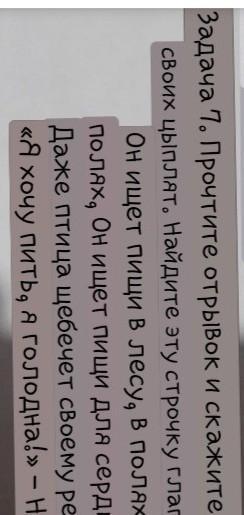 Задача 7. Прочтите отрывок и скажите
своих цыплят. Найдите эту строчку
Он ищет пищи в лесу, в полях
полях, Он ищет пищи для
Даже птица щебечет своему
«Я хочу пить, я голодна!» –